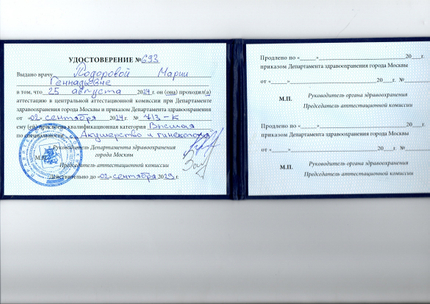 УДОСТОВЕРЕНИЕ № 693
Выдано врачу Тодоровой Марии
Геннадьевне
в том, что 25 августа 2024 г. он (она) прошел(а)
аттестацию в центральной аттестационной комиссии при Департаменте
здравоохранения города Москвы и приказом Департамента здравоохранения
от «02» сентября 2024 г. № 713-К
ему (ей) присвоена квалификационная категория Высшая
по специальности Акушерство и гинекология
Руководитель Департамента здравоохранения
города Москвы
М.П.
Председатель аттестационной комиссии
Действительно до «02» сентября 2029 г.
Продлено по «____» 20__ г.
приказом Департамента здравоохранения города Москвы
от «____» 20__ г. №
Руководитель органа здравоохранения
М.П.
Председатель аттестационной комиссии
Продлено по «____» 20__ г.
приказом Департамента здравоохранения города Москвы
от «____» 20__ г. №
Руководитель органа здравоохранения
М.П.
Председатель аттестационной комиссии